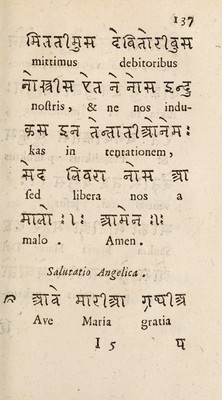 137
मिततीमुस देबितोरीवुस
mittimus debitoribus
नोस्त्रीस एत ने नोस इन्दु
noſtris, & ne nos indu-
कस इन तेन्तातीओनेम:
kas in tentationem,
सेद लिबरा नोस आ
ſed libera nos a
मालो :।: आमेन :।:
malo . Amen.
Salutatio Angelica.
आवे मारीआ
Ave Maria gratia
I 5 ष